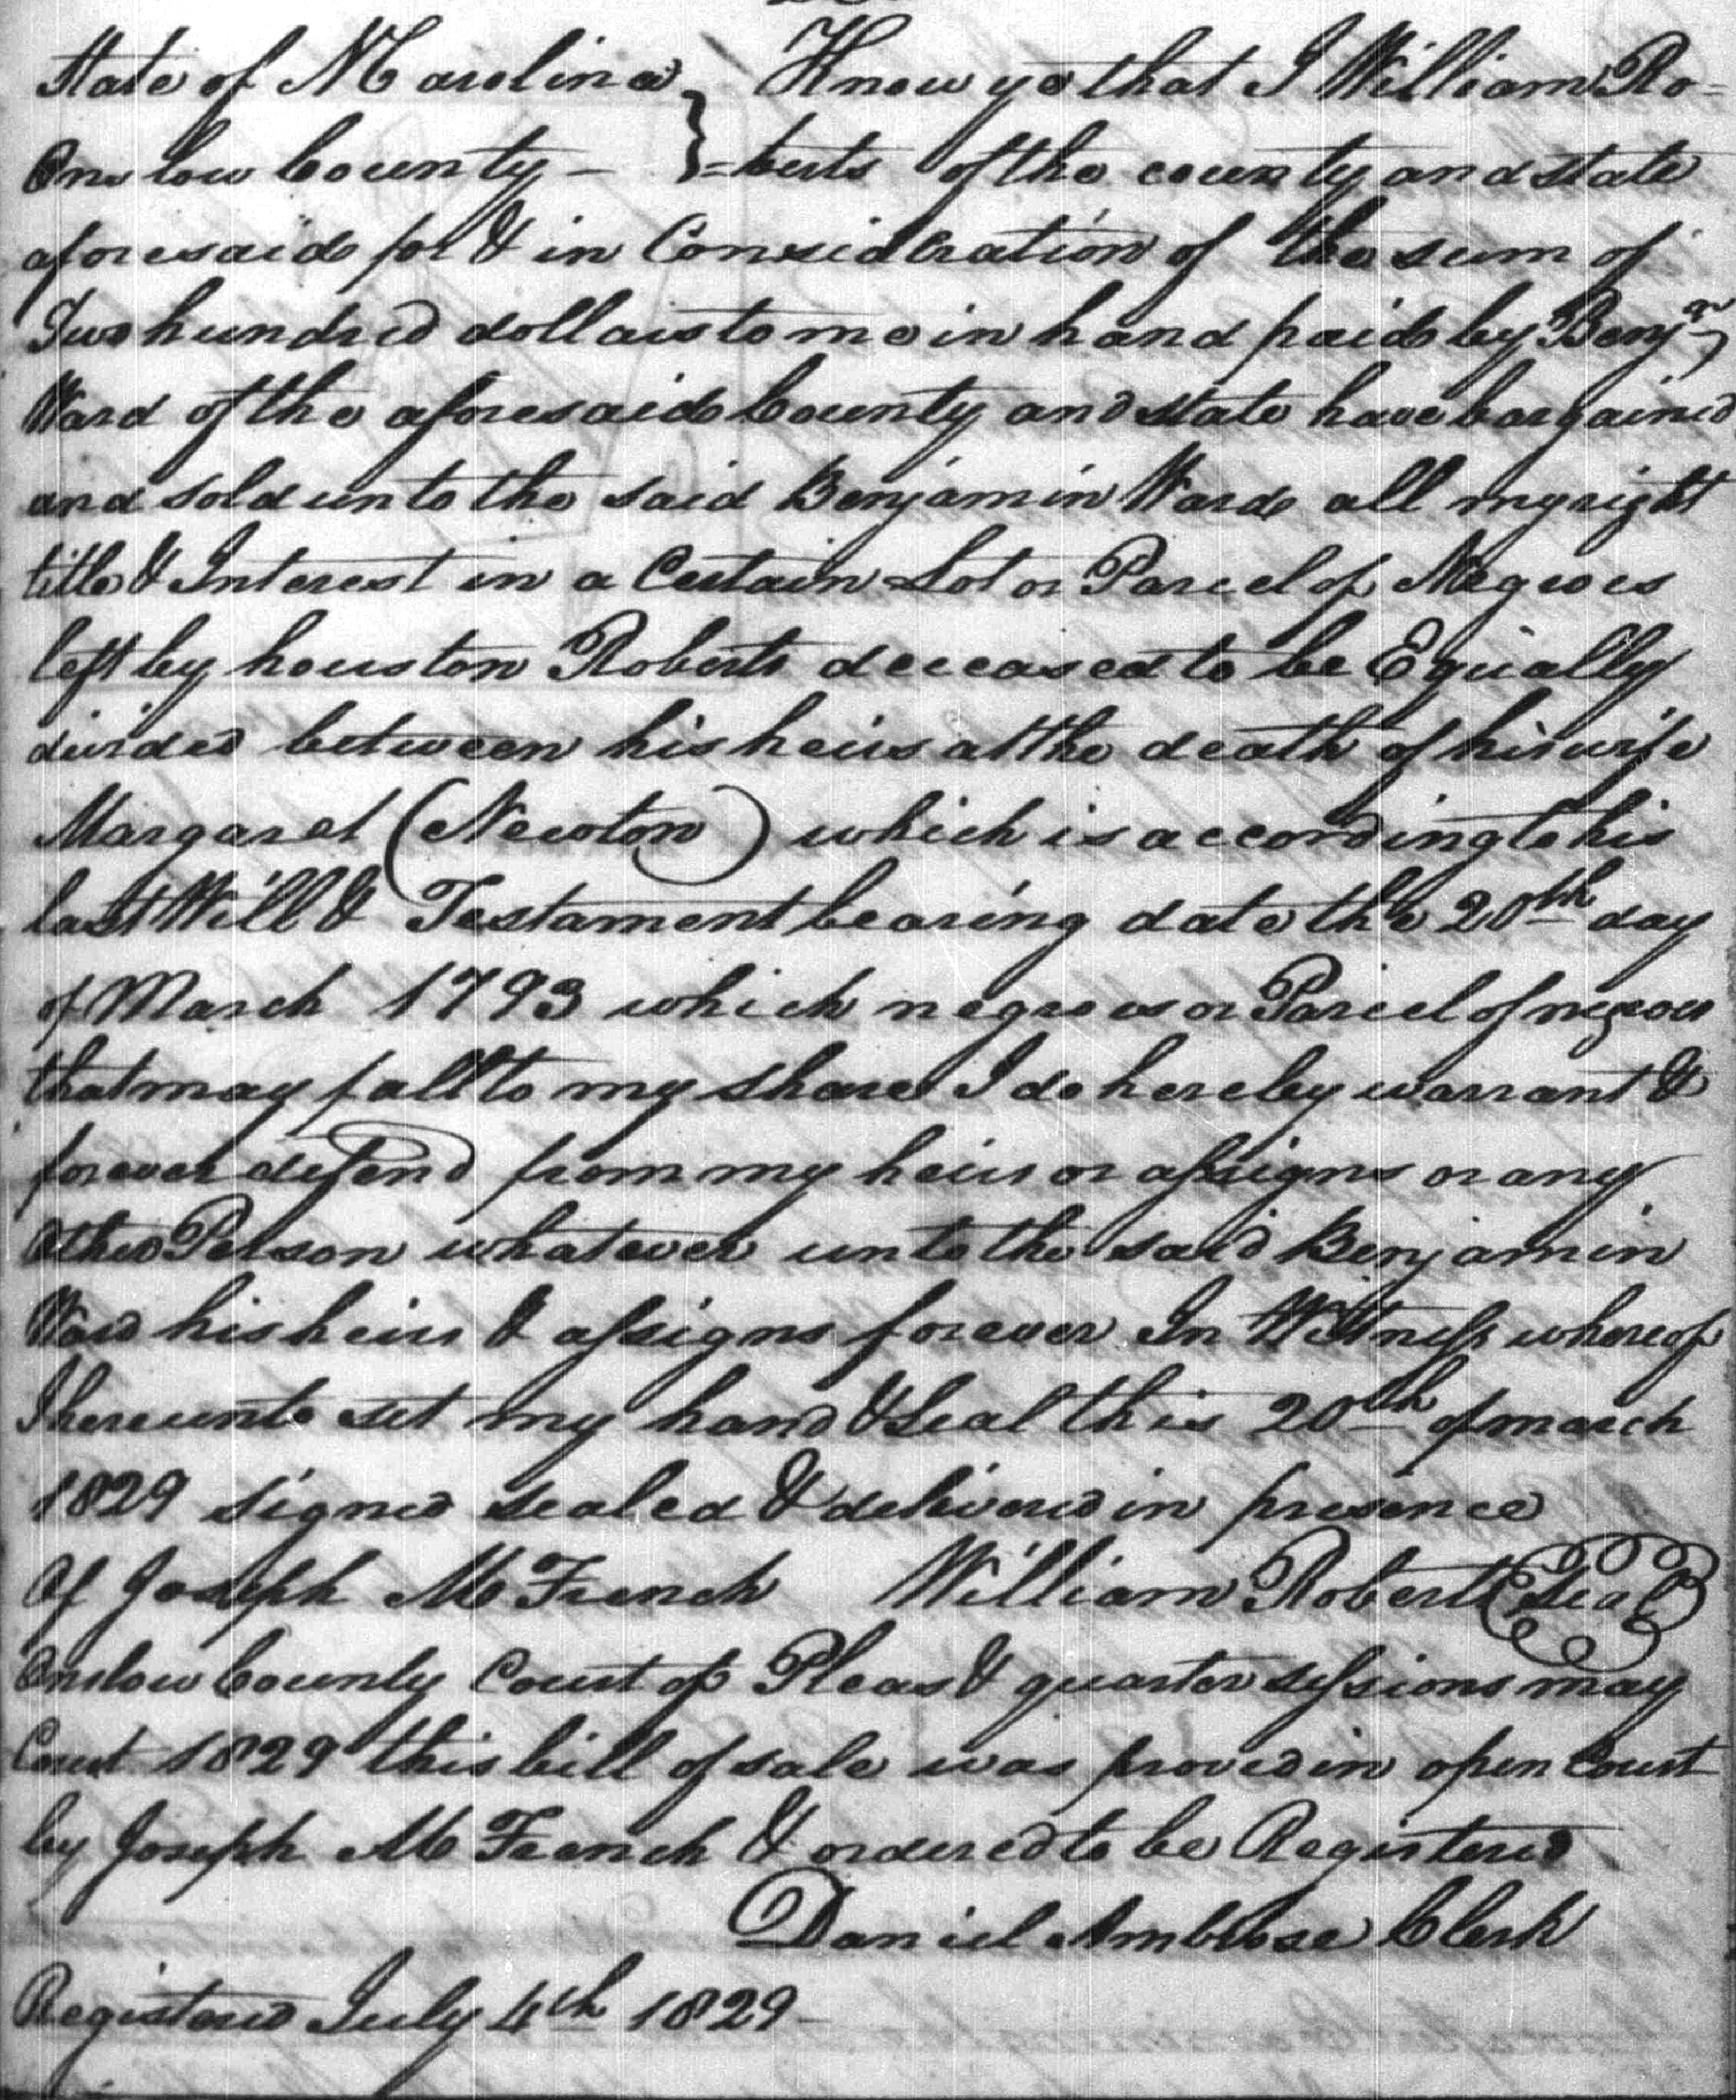 State of N Carolina } Know ye that I William Ro=
Onslow County - } =berts of the county and state
aforesaid for & in Consideration of the sum of
Two hundred dollars to me in hand paid by Benjn
Ward of the aforesaid County and state have bargained
and sold unto the said Benjamin Ward all my right
title & Interest in a Certain Lot or Parcel of Negroes
left by houston Roberts deceased to be Equally
divided between his heirs at the death of his wife
Margaret (Newton) which is according to his
last Will & Testament bearing date the 20th day
of March 1793 which negroes or Parcel of negroes
that may fall to my share I do hereby warrant &
forever defend from my heirs or assigns or any
Other Person whatever unto the said Benjamin
Ward his heirs & assigns forever In Witness whereof
I hereunto set my hand & Seal this 20th of march
1829 signed sealed & delivered in presence
Of Joseph M French William Roberts Seal
Onslow County Court of Pleas & quarter sessions may
Court 1829 this bill of sale was proved in open Court
by Joseph M French & ordered to be Registered
Daniel Ambrose Clerk
Registered July 4th 1829-